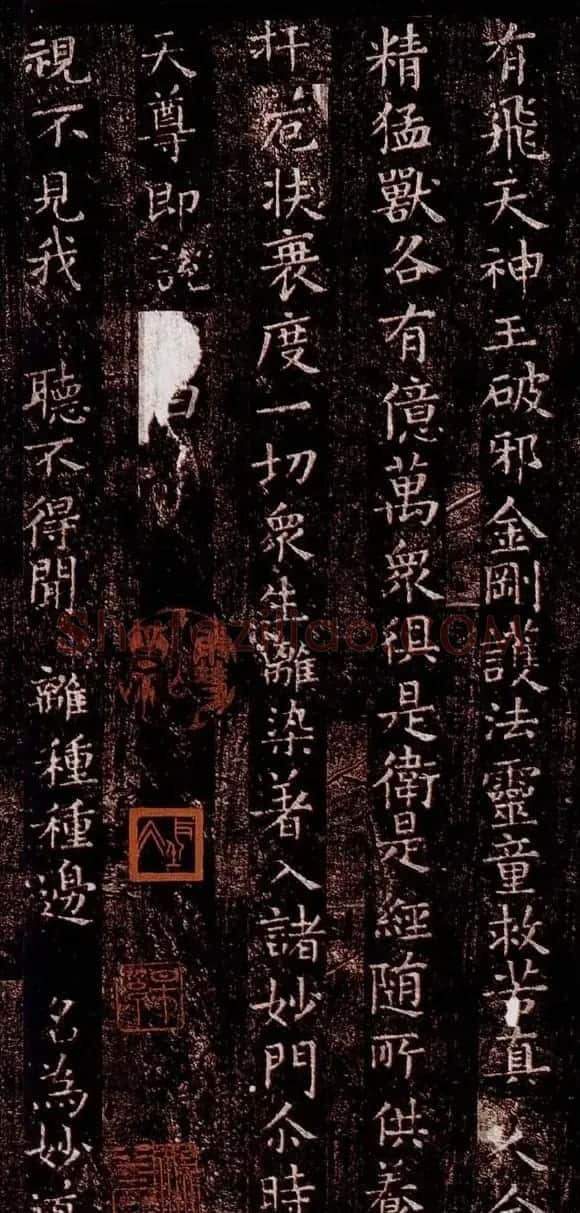 有飛天神王破邪金剛護法靈童救苦真人金
精猛獸各有億萬衆俱是衛是經随所供養
扞厄扶衰度一切衆生離染著入諸妙門尒時
天尊即說
視不見我 聽不得聞 離種種邊 名為妙道
Shufaziliao.COM